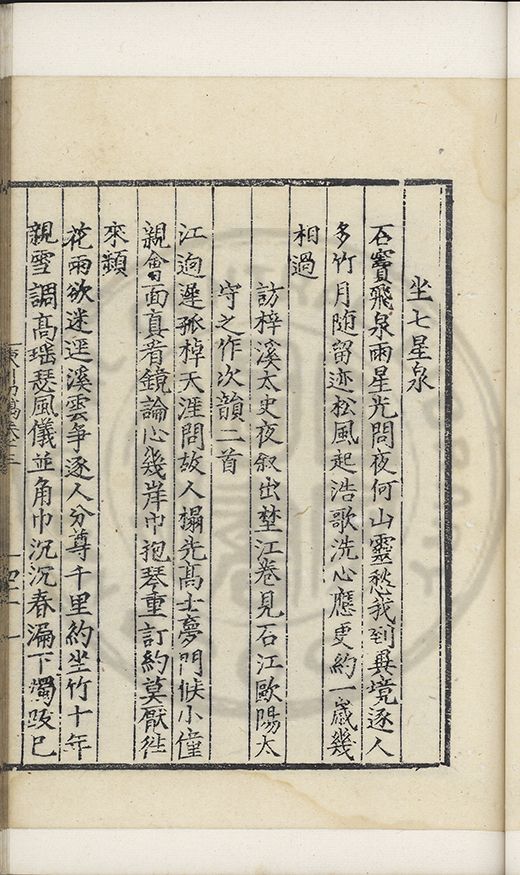 坐七星泉
石竇飛泉雨星光問夜何山靈愁我到異境逐人
多竹月随留迹松風起浩歌洗心應更約一歲幾
相過
訪梓溪太史夜叙出埜江卷見石江歐陽太
守之作次韻二首
江逈遲孤棹天涯問故人榻先髙士夢門候小僮
親會面真看鏡論心幾岸巾抱琴重訂約莫厭往
來頻
花雨欲迷逕溪雲争逐人分尊千里約坐竹十年
親雪調髙瑶瑟風儀並角巾沉沉春漏下燭跋已